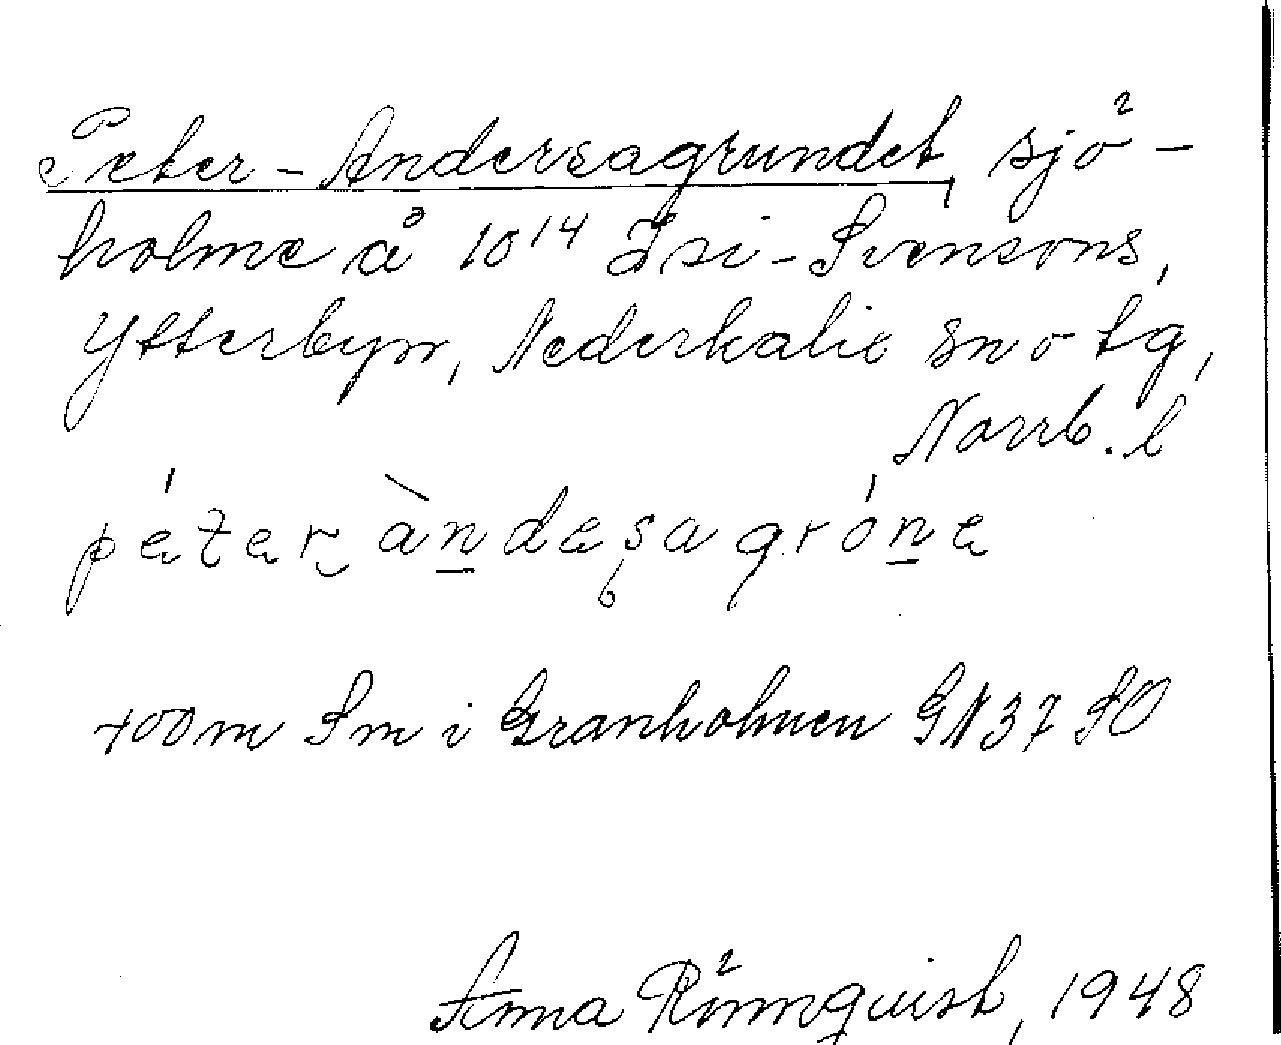 Peter-Andersagrundet, sjö-
holme å 10¹⁴ Isi-Svensons,
Ytterbyn, Nederkalix sn o tg,
Norrb. l
pétar àndaṣagróna
400m Sm i Granholmen GN37 SO
Anna Rönnquist, 1948